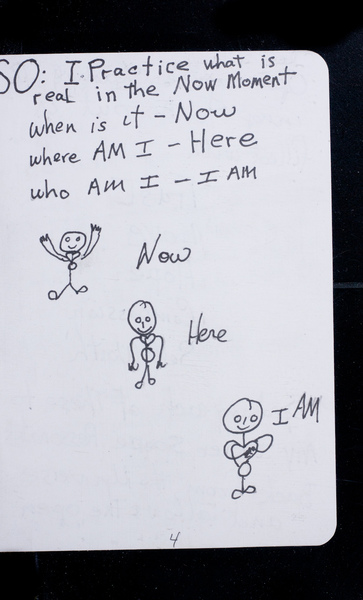 SO: I Practice what is
real in the Now Moment
when is it - Now
where AM I - Here
who AM I - I AM
Now
Here
I AM
4